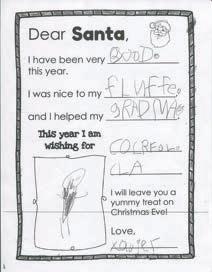 Dear Santa,
I have been very GOOD.
this year.
I was nice to my FLUFFE.
and I helped my GRADMA
This year I am
wishing for
COLREOL
CLA
I will leave you a
yummy treat on
Christmas Eve!
Love,
XAVIER